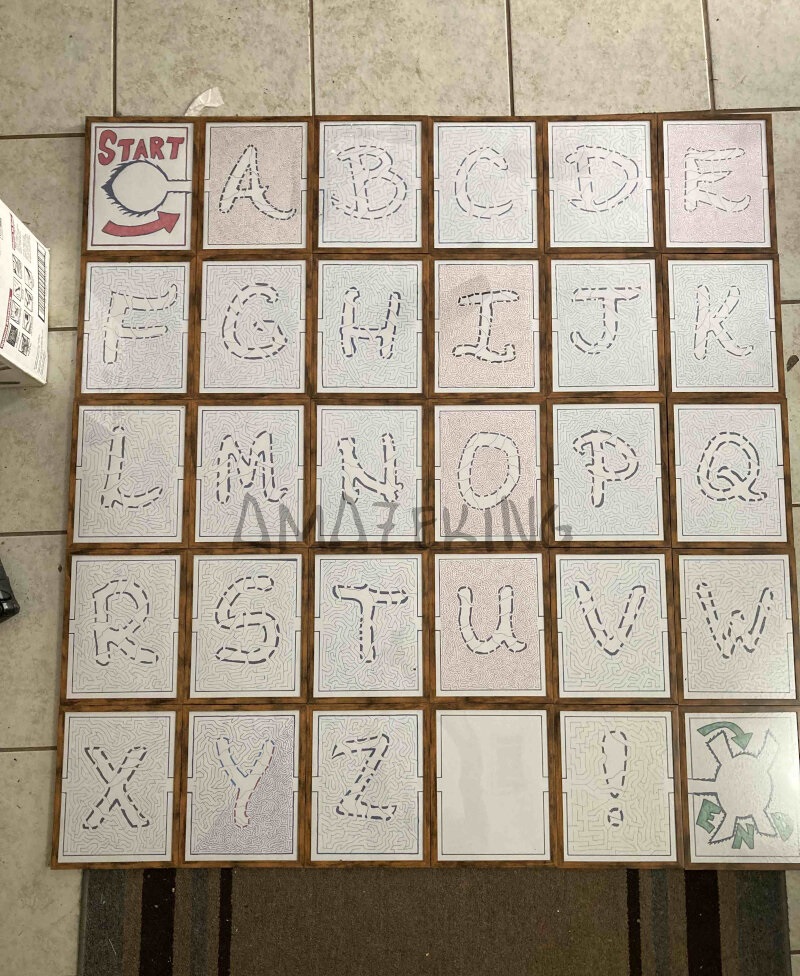 START A B C D E
F G H I J K
L M N O P Q
AMAZEKING
R S T U V W
X Y Z ! END